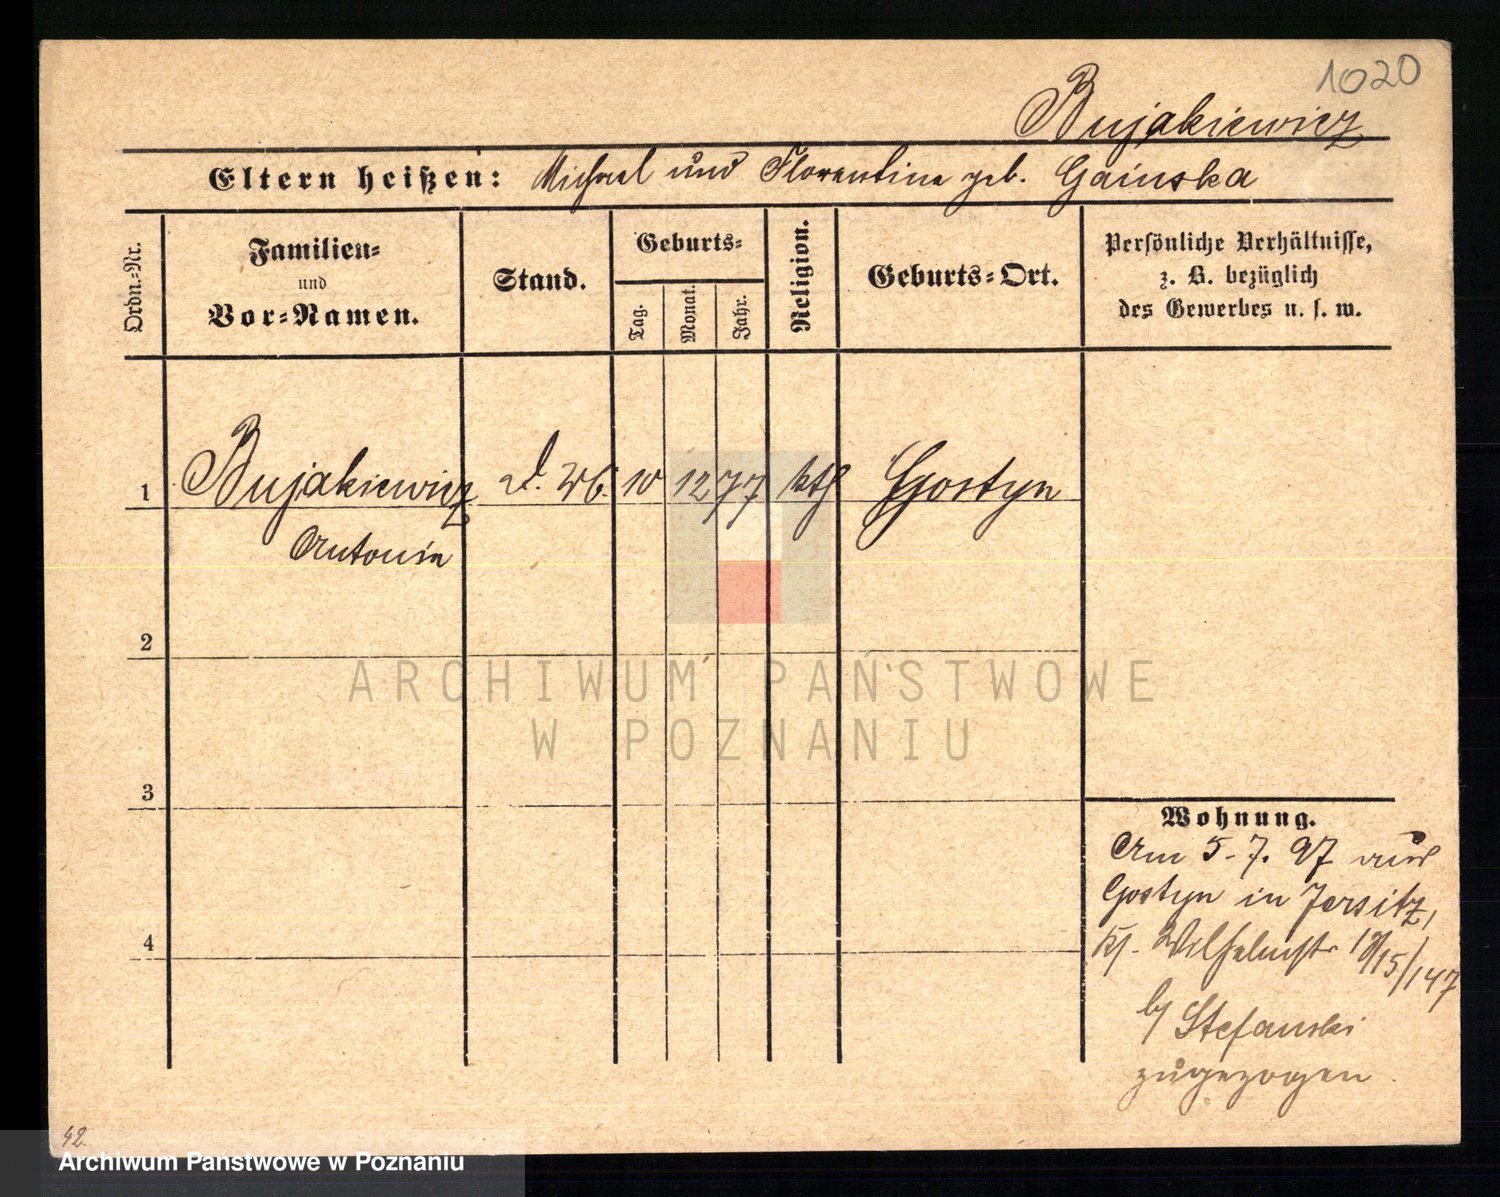 1020
Bujakiewicz
Eltern heißen: Michael und Florentine geb. Gainska
Ordn.-Nr.
Familien-
und
Vor-Namen.
Stand.
Geburts-
Tag.
Monat.
Jahr.
Religion.
Geburts-Ort.
Persönliche Verhältnisse,
z. B. bezüglich
des Gewerbes u. s. w.
1 Bujakiewicz 10 12 77 kth Gostyn
Antonie
2
3
4
Wohnung.
Am 5.7.97 aus
Gostyn in Jersitz,
Wilhelmstr 15/147
b/ Stefanski
zugezogen
42.
ARCHIWUM PAŃSTWOWE
W POZNANIU
Archiwum Państwowe w Poznaniu